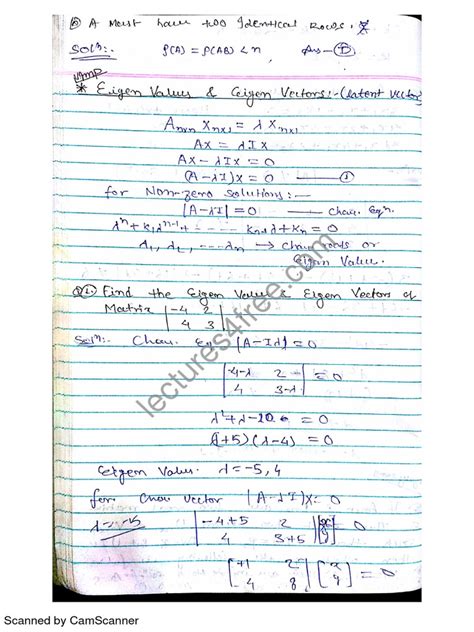 ⑤ A Must have two Identical Rows.
Sol^n:- ρ(A) = ρ(AB) < n Ans - ①
Imp
* Eigen Values & Eigen Vectors:- (latent vector
A_{n×n} X_{n×1} = λ X_{n×1}
AX = λIX
AX - λIX = 0
(A-λI)X = 0 —— ①
for Non-zero Solutions:-
|A-λI| = 0 —— Char. Eq^n.
λ^n + K_1 λ^{n-1} + - - - - K_{n-1} λ + K_n = 0
λ_1, λ_2, ---- λ_n → Char. roots or
Eigen Value.
Q① Find the Eigen Values & Eigen Vectors of
Matrix | -4 2 |
| 4 3 |
Sol^n:- Char. Eq |A-Iλ| = 0
| -4-λ 2 | = 0
| 4 3-λ |
λ² + λ - 20 = 0
(λ+5)(λ-4) = 0
Eigen Value. λ = -5, 4
for Char vector |A-λI)X = 0
λ = -5 | -4+5 2 | [x] = 0
| 4 3+5 | [y]
[ +1 2 ] [x] = 0
[ 4 8 ] [y]
lectures4free.com
Scanned by CamScanner